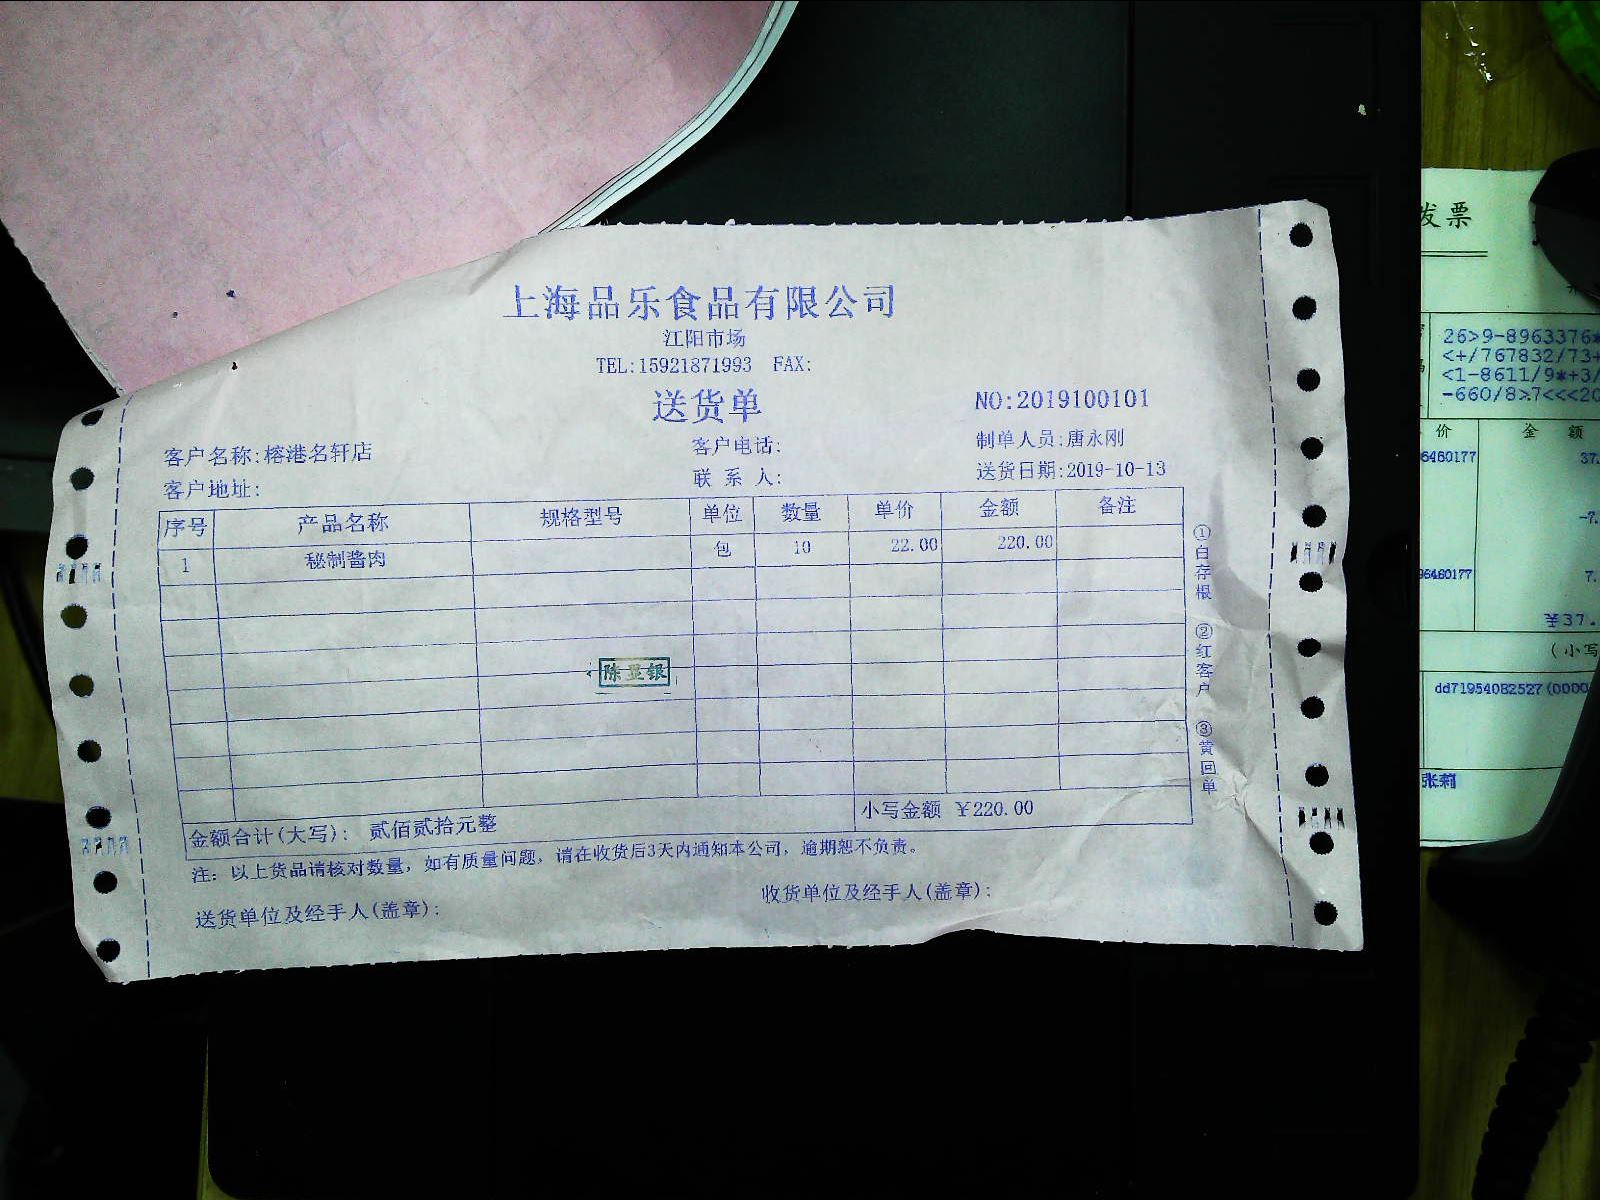 上海品乐食品有限公司
江阳市场
TEL:15921871993 FAX:
送货单
NO:2019100101
客户名称:榕港名轩店 客户电话: 制单人员:唐永刚
客户地址: 联系人: 送货日期:2019-10-13
序号 产品名称 规格型号 单位 数量 单价 金额 备注
1 秘制酱肉 包 10 22.00 220.00
陈显银
金额合计(大写): 贰佰贰拾元整 小写金额 ¥220.00
注: 以上货品请核对数量, 如有质量问题, 请在收货后3天内通知本公司, 逾期恕不负责。
送货单位及经手人(盖章): 收货单位及经手人(盖章):
①白存根 ②红客户 ③黄回单
发票
26>9-8963376*
<+/767832/73+
<1-8611/9*+3/
-660/8>7<<<20
价 金额
6460177 37.
-7.
96460177 7.
¥37.
(小写
dd71954082527(0000
张莉